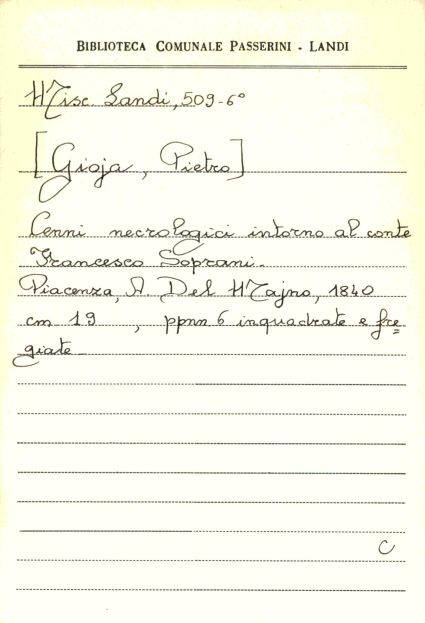 BIBLIOTECA COMUNALE PASSERINI - LANDI
Misc. Landi, 509-6°
[Gioja, Pietro]
Cenni necrologici intorno al conte
Francesco Soprani.
Piacenza, A. Del Majno, 1840
cm 19 , ppnn 6 inquadrate e fre=
giate
C